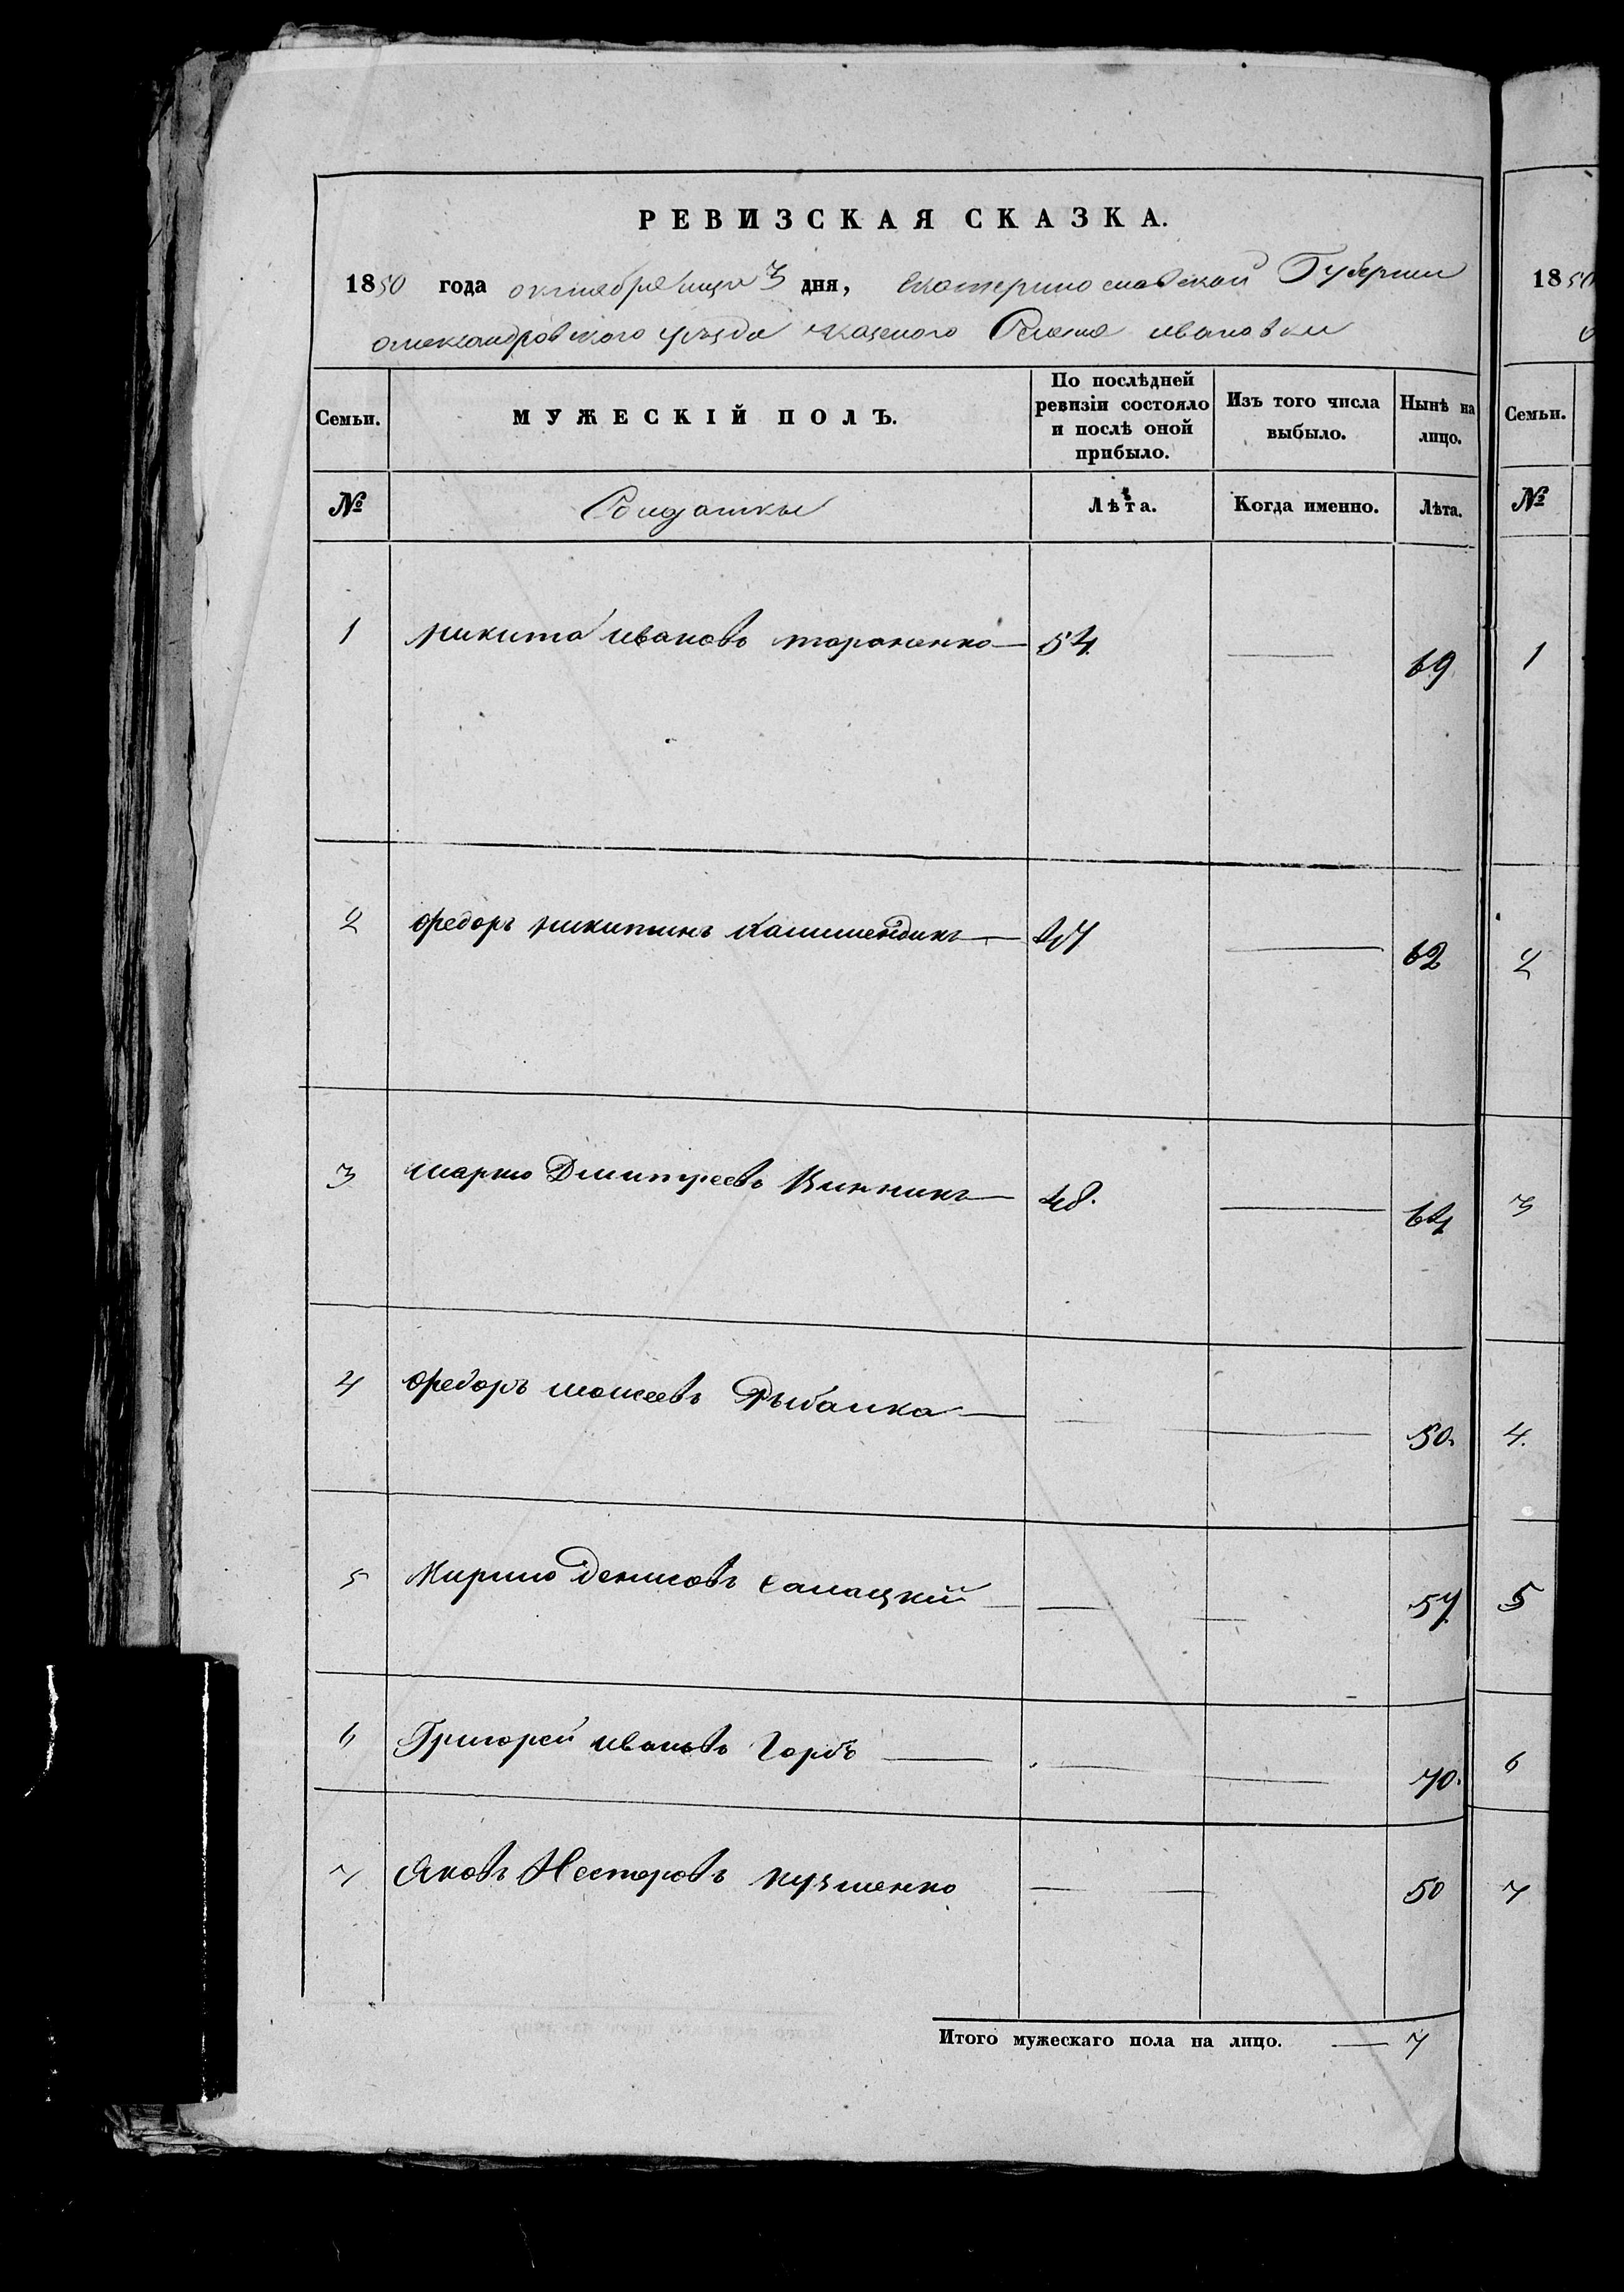 РЕВИЗСКАЯ СКАЗКА.
1850 года октября месяца 3 дня, Екатеринославской Губернии
александровского уезда казеного Селения ивановки
Семьи.
МУЖЕСКІЙ ПОЛЪ.
По послѣдней ревизіи состояло и послѣ оной прибыло.
Изъ того числа выбыло.
Нынѣ на лицо.
№
Лѣта.
Когда именно.
Лѣта.
1 никита ивановъ тараненко — 54 — 69
2 федоръ никитинъ — 47 — 62
3 марко Дмитреевъ Винникъ — 48. — 64
4 федоръ моисеевъ Рыбалка — — — 50.
5 Кирило Денисовъ — — 57
6 Григорей ивановъ Горбъ — — — 70.
7 Яковъ Нестеровъ кузменко — — 50
Итого мужескаго пола на лицо. — 7
1850
Семьи.
№
1
2
3
4.
5
6
7